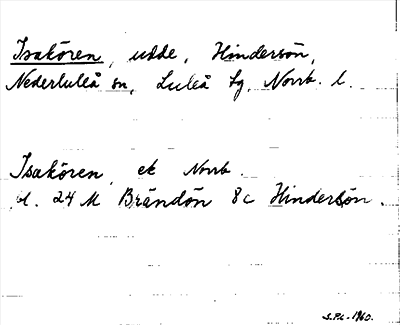 Isakören, udde, Hindersön,
Nederluleå sn, Luleå tg, Norrb. l.
Isakören, ek Norrb.
l. 24 M Brändön 8c Hindersön.
S.P.L. 1960.